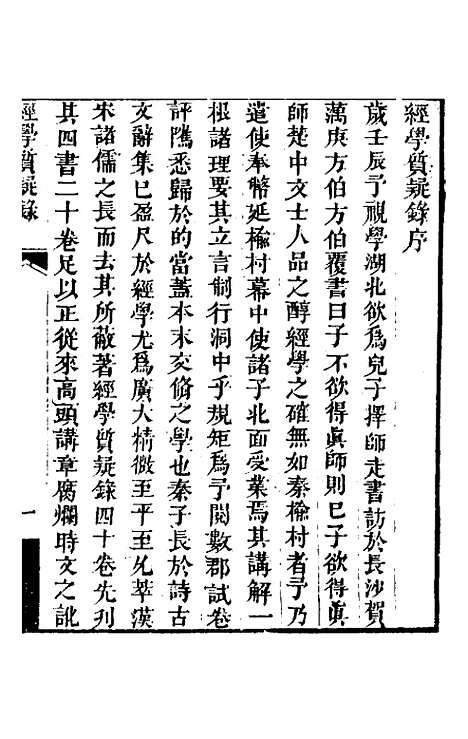 經學質疑錄序
歲壬辰予視學湖北欲爲兒子擇師走書訪於長沙賀
蔗庚方伯方伯覆書曰子不欲得眞師則已子欲得眞
師楚中文士人品之醇經學之確無如秦榆村者予乃
遣使奉幣延榆村幕中使諸子北面受業焉其講解一
根諸理要其立言制行洞中乎規矩爲予閱數郡試卷
評隲悉歸於的當蓋本末交脩之學也秦子長於詩古
文辭集已盈尺於經學尤爲廣大精微至平至允萃漢
宋諸儒之長而去其所蔽著經學質疑錄四十卷先列
其四書二十卷足以正從來高頭講章腐爛時文之訛
經學質疑錄
一